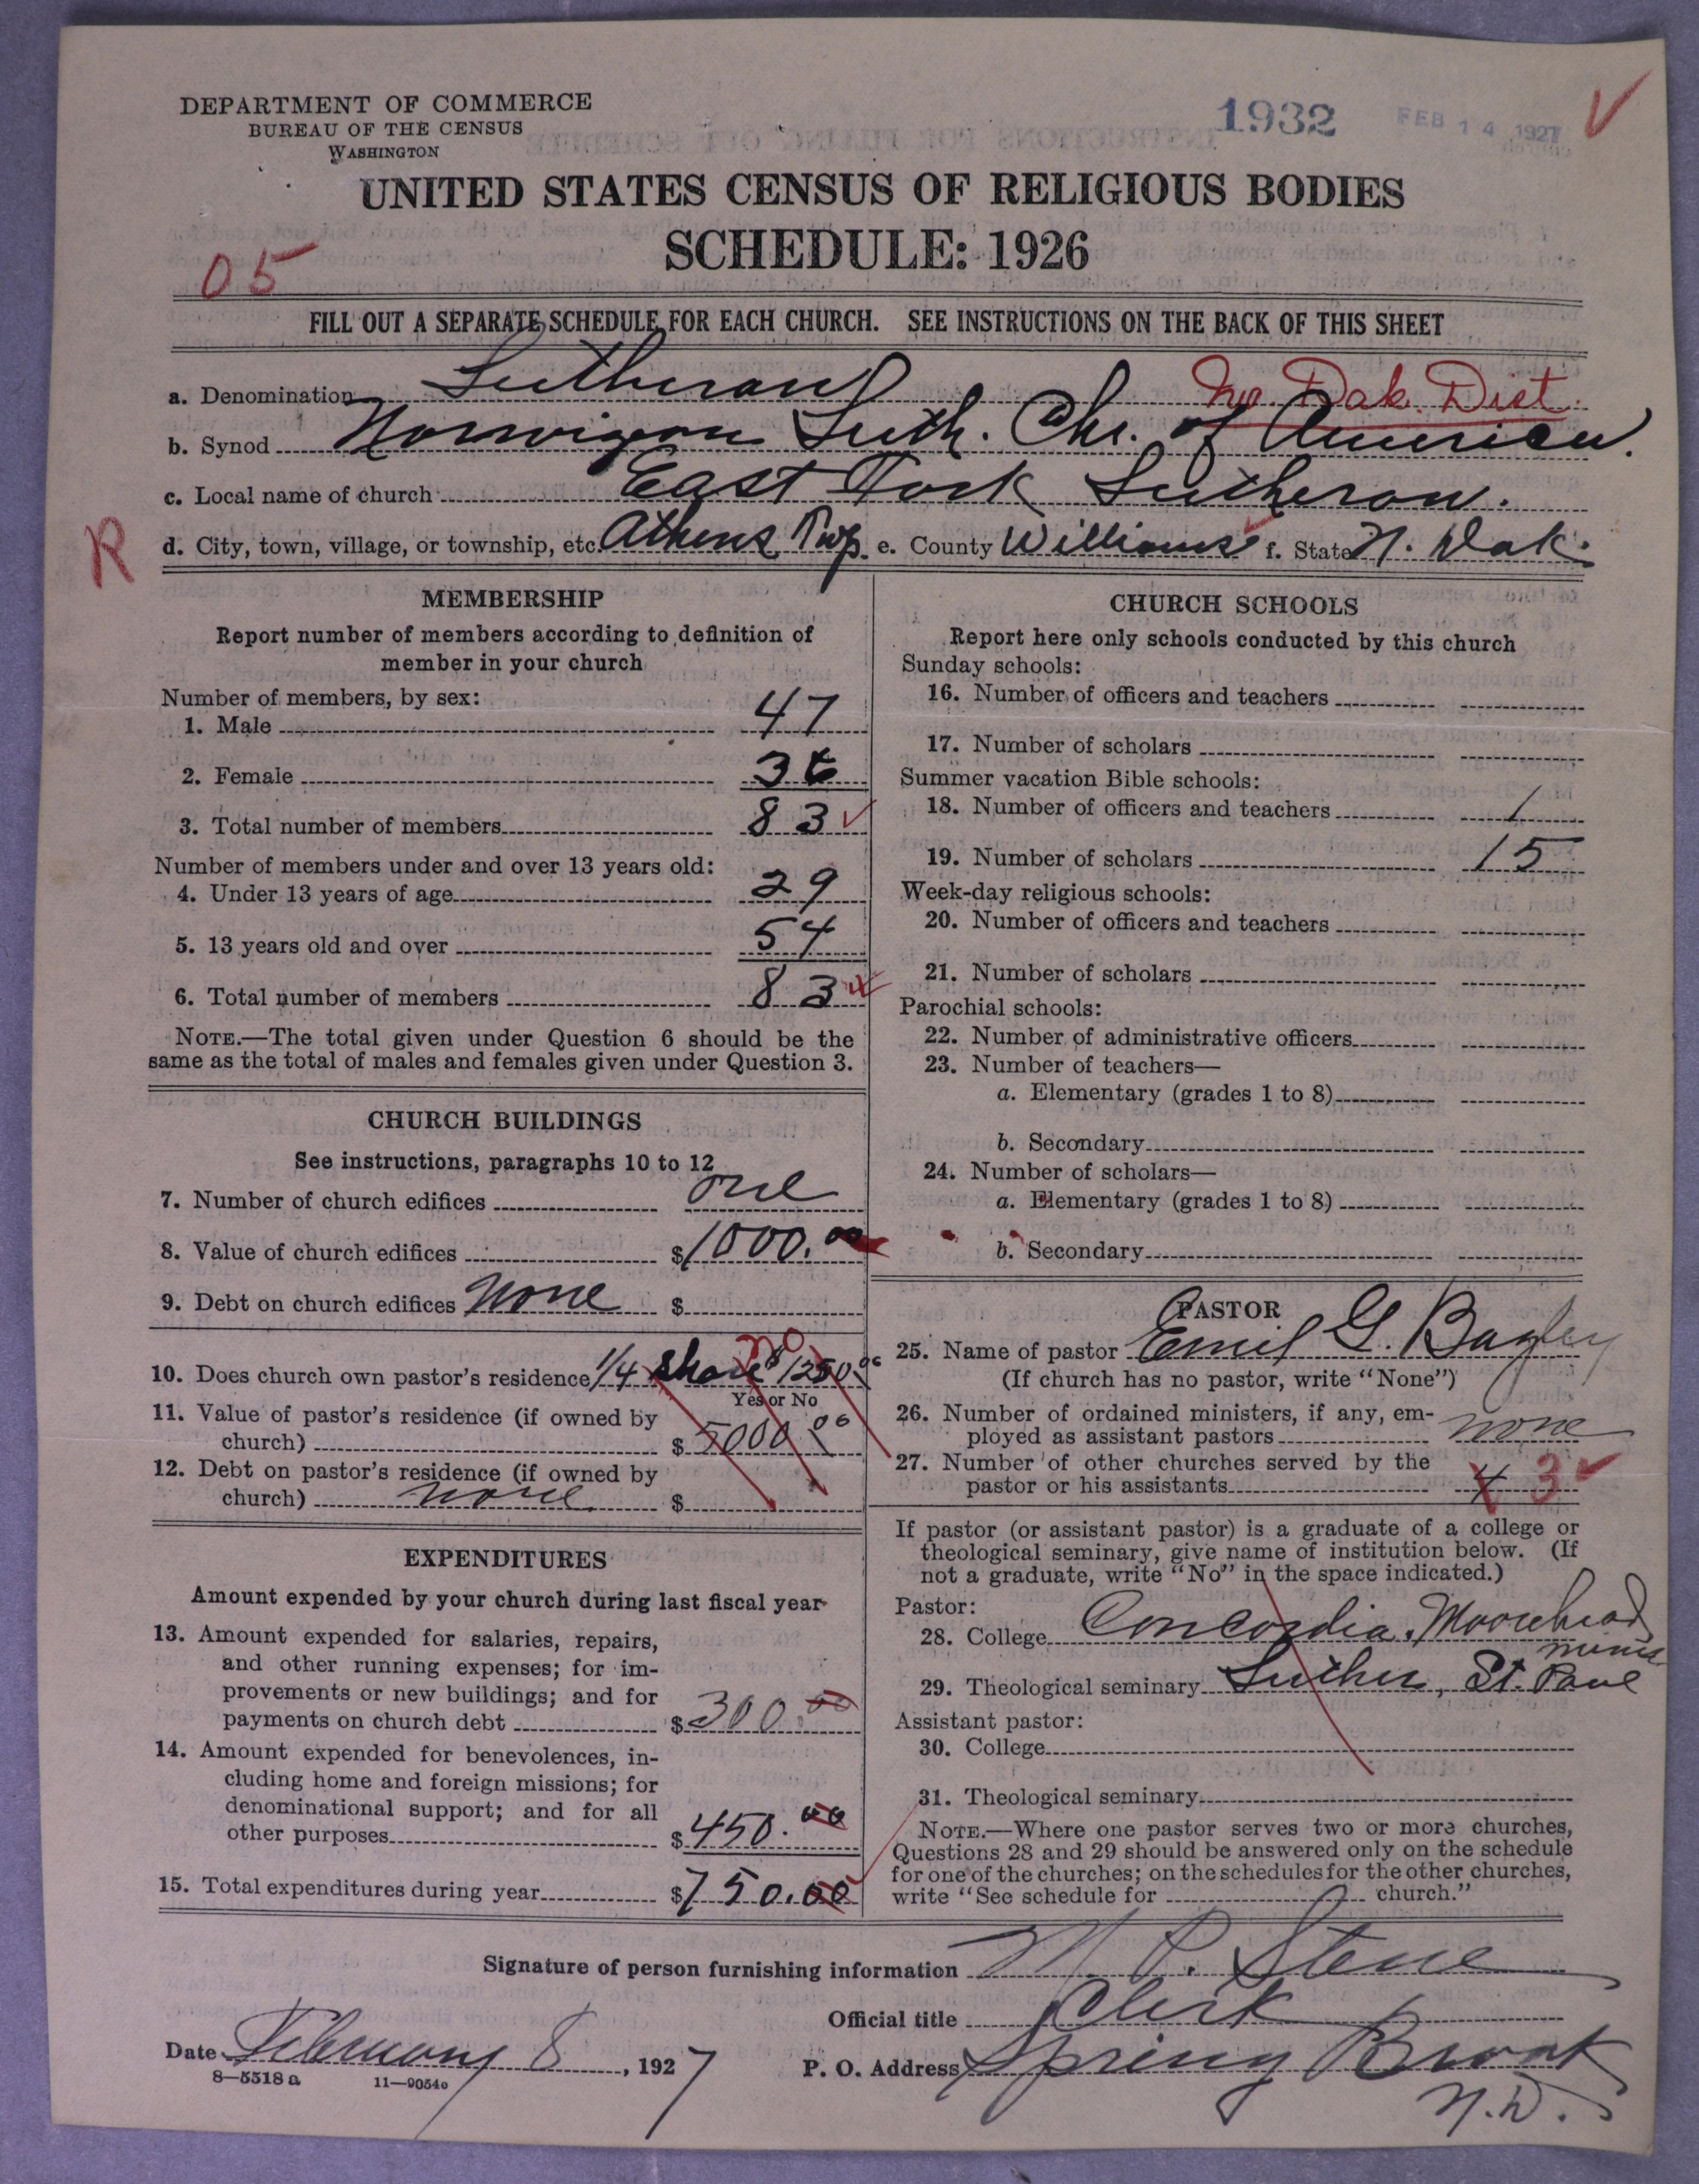 DEPARTMENT OF COMMERCE
BUREAU OF THE CENSUS
WASHINGTON
1932
FEB 14 1927
UNITED STATES CENSUS OF RELIGIOUS BODIES
SCHEDULE: 1926
05
FILL OUT A SEPARATE SCHEDULE FOR EACH CHURCH. SEE INSTRUCTIONS ON THE BACK OF THIS SHEET
a. Denomination Lutheran No. Dak. Dist.
b. Synod Norwigan Luth. Chr. of America.
c. Local name of church East Fork Lutheran.
R
d. City, town, village, or township, etc. Athens Twp. e. County Williams f. State N. Dak.
MEMBERSHIP
Report number of members according to definition of
member in your church
Number of members, by sex:
1. Male 47
2. Female 36
3. Total number of members 83
Number of members under and over 13 years old:
4. Under 13 years of age 29
5. 13 years old and over 54
6. Total number of members 83
NOTE.—The total given under Question 6 should be the
same as the total of males and females given under Question 3.
CHURCH BUILDINGS
See instructions, paragraphs 10 to 12
7. Number of church edifices one
8. Value of church edifices $1000.00
9. Debt on church edifices None $
no
10. Does church own pastor's residence 1/4 share $1250.00
Yes or No
11. Value of pastor's residence (if owned by
church) $5000.00
12. Debt on pastor's residence (if owned by
church) none $
EXPENDITURES
Amount expended by your church during last fiscal year
13. Amount expended for salaries, repairs,
and other running expenses; for im-
provements or new buildings; and for
payments on church debt $300.00
14. Amount expended for benevolences, in-
cluding home and foreign missions; for
denominational support; and for all
other purposes $450.00
15. Total expenditures during year $750.00
CHURCH SCHOOLS
Report here only schools conducted by this church
Sunday schools:
16. Number of officers and teachers
17. Number of scholars
Summer vacation Bible schools:
18. Number of officers and teachers 1
19. Number of scholars 15
Week-day religious schools:
20. Number of officers and teachers
21. Number of scholars
Parochial schools:
22. Number of administrative officers
23. Number of teachers—
a. Elementary (grades 1 to 8)
b. Secondary
24. Number of scholars—
a. Elementary (grades 1 to 8)
b. Secondary
PASTOR
25. Name of pastor Emil G.
(If church has no pastor, write "None")
26. Number of ordained ministers, if any, em-
ployed as assistant pastors none
27. Number of other churches served by the
pastor or his assistants 4 3
If pastor (or assistant pastor) is a graduate of a college or
theological seminary, give name of institution below. (If
not a graduate, write "No" in the space indicated.)
Pastor:
28. College Concordia, Moorehead
Minn
29. Theological seminary Luther, St. Paul
Assistant pastor:
30. College
31. Theological seminary
NOTE.—Where one pastor serves two or more churches,
Questions 28 and 29 should be answered only on the schedule
for one of the churches; on the schedules for the other churches,
write "See schedule for church."
Signature of person furnishing information N. P. Stene
Official title Clerk
Date February 8, 1927
P. O. Address Spring Brook
N.D.
8—5518a 11—9054o